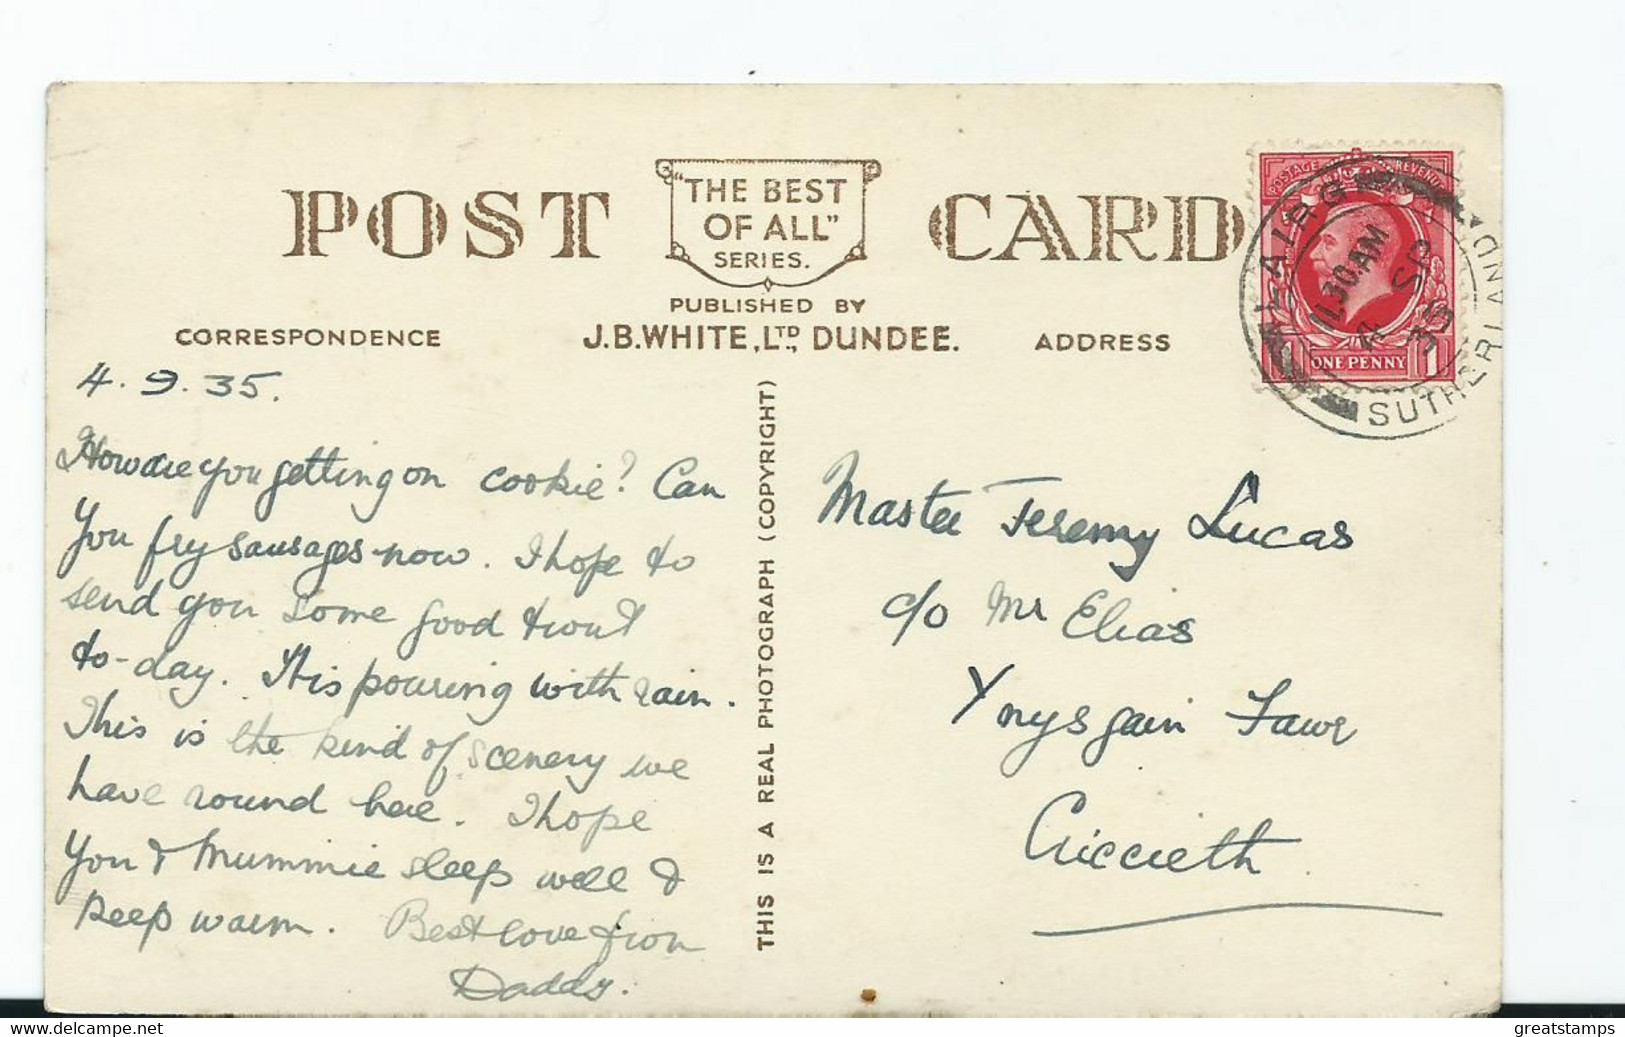 POST CARD
"THE BEST
OF ALL"
SERIES.
PUBLISHED BY
J.B.WHITE, LTD., DUNDEE.
CORRESPONDENCE
ADDRESS
POSTAGE REVENUE
ONE PENNY
1 1
LAIRG
SUTHERLAND
11.30 AM
4 SP
35
4.9.35.
How are you getting on cookie? Can
you fry sausages now. I hope to
send you some good trout
to-day. It is pouring with rain.
This is the kind of scenery we
have round here. I hope
you & Mummie sleep well &
keep warm. Best love from
Daddy.
THIS IS A REAL PHOTOGRAPH (COPYRIGHT)
Master Jeremy Lucas
c/o Mr Elias
Ynysgain Fawr
Criccieth
delcampe.net
greatstamps